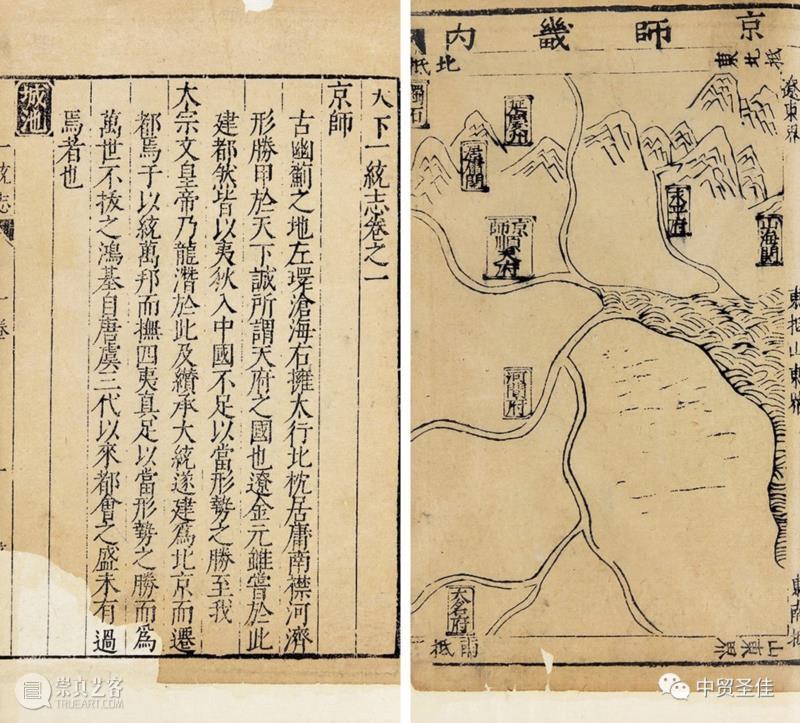 大下一統志卷之一
京師
古幽薊之地左環滄海右擁太行北枕居庸南襟河濟
形勝甲於天下誠所謂天府之國也遼金元雖嘗於此
建都然皆以夷狄入中國不足以當形勢之勝至我
太宗文皇帝乃龍潛於此及纘承大統遂建爲北京而遷
都焉于以統萬邦而撫四夷真足以當形勢之勝而爲
萬世不拔之鴻基自唐虞三代以來都會之盛未有過
焉者也
城池
一統志
一卷
京師畿內
抵東北
遼東界
北抵
延慶州
居庸關
京師順天府
永平府
山海關
河間府
大名府
南抵
東抵山東界
東南抵
山東界
崇真艺客
TRUEART.COM
中贸圣佳